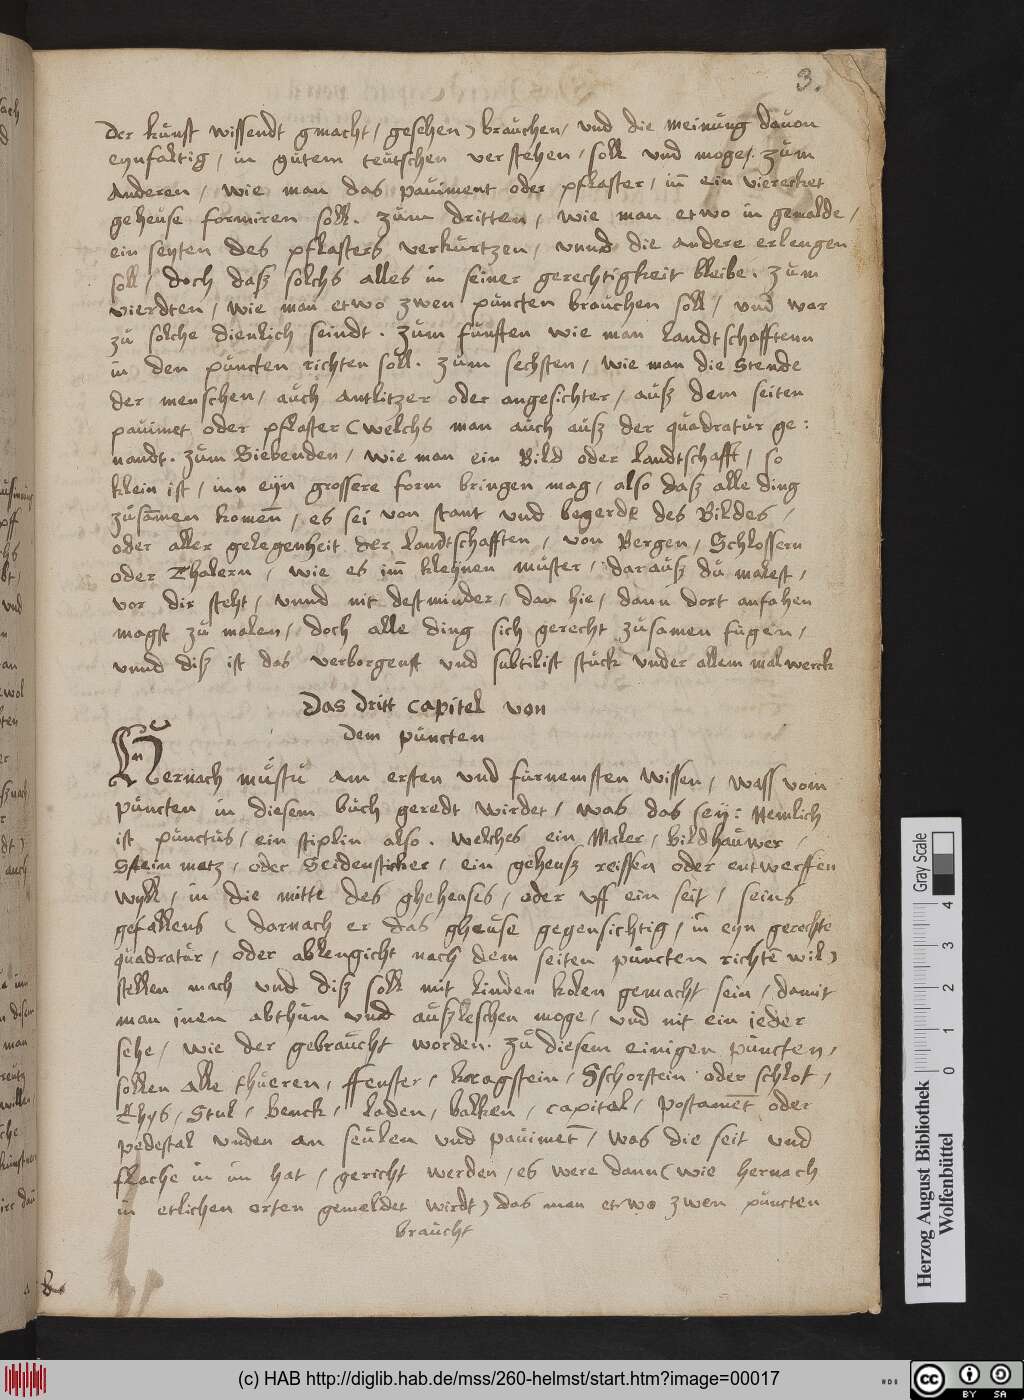 3.
der kunst wissendt gmacht, gesehen) brauchen, und die meinung dauon
eynfaltig, in gutem teutschen verstehen, soll und moge. zum
Anderen, wie man das pauiment oder pflaster, inn ein vierecket
geheuse formiren soll. zum dritten, wie man etwo in gemalde,
ein seyten des pflasters verkurtzen, unnd die andere erlengen
soll, doch dasz solchs alles in seiner gerechtigkeit bleibe. zum
vierdten, wie man etwo zwen puncten brauchen soll, und war
zu solche dienlich seindt. zum funften wie man landtschafftenn
in den puncten richten soll. zum sechsten, wie man die Stende
der menschen, auch antlitzer oder angesichter, ausz dem seiten
pauimet oder pflaster (welchs man auch ausz der quadratur ge:
nandt. zum Siebenden, wie man ein Bild oder landtschafft, so
klein ist, inn eyn grossere form bringen mag, also dasz alle ding
zusamen komen, es sei von stant und begerde des Bildes,
oder aller gelegenheit der landtschafften, von Bergen, Schlossern
oder Thalern, wie es im kleynen muster, darausz du malest,
vor dir steht, unnd nit destminder, dan hie, dann dort anfahen
magst zu malen, doch alle ding sich gerecht zusamen fugen,
unnd disz ist das verborgenst und subtilist stuck under allem malwerck
Das dritt capitel von
dem puncten
Hernach mustu am ersten und furnemsten wissen, wass vom
puncten in diesem buch geredt wirdet, was das sey: Nemlich
ist punctus, ein stiplin also. welches ein Maler, Bildhauwer,
Steinmetz, oder Seidensticker, ein geheusz reissen oder entwerffen
wyll, in die mitte des gheheuses, oder uff ein seit, seins
gefallens (darnach er das gheuse gegensichtig, in eyn gerechte
quadratur, oder ablengicht nach dem seiten puncten richte wil)
stellen mach und disz soll mit linden kolen gemacht sein, damit
man inen abthun und auszleschen moge, und nit ein jeder
sehe, wie der gebraucht worden. zu diesem einigen puncten,
sollen alle thueren, ffenster, kragstein, Sschorstein oder schlot,
Thys, Stul, benck, laden, balken, capital, postamet oder
pedestal unden an seulen und pauimet, was die seit und
flache in im hat, gericht werden, es were dann (wie hernach
in etlichen orten gemeldet wirdt) das man etwo zwen puncten
braucht
Herzog August Bibliothek
Wolfenbüttel
Gray Scale
0 1 2 3 4
(c) HAB http://diglib.hab.de/mss/260-helmst/start.htm?image=00017
cc BY SA